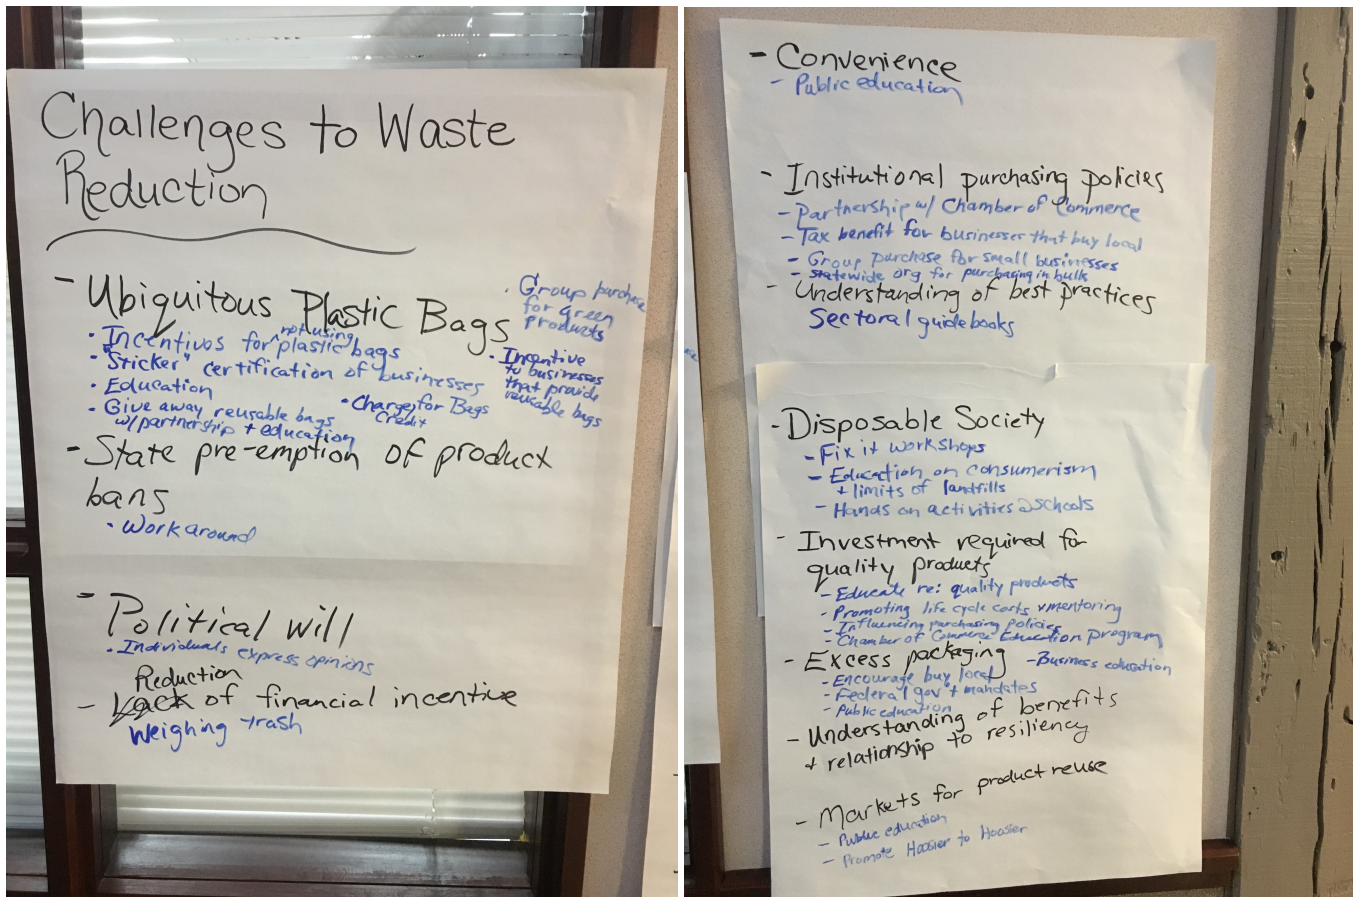 Challenges to Waste
Reduction
- Ubiquitous Plastic Bags
• Incentivos for ^not using plastic bags
• "Sticker" certification of businesses
• Education
• Give away reusable bags
w/partnership + education
• Charge for Bags
Credit
• Group purchase
for green
products
• Incentive
to businesses
that provide
reusable bags
- State pre-emption of product
bans
• Workaround
- Political will
• Individuals express opinions
Reduction
- Lack of financial incentive
Weighing trash
- Convenience
- Public education
- Institutional purchasing policies
- Partnership w/ Chamber of Commerce
- Tax benefit for businesses that buy local
- Group purchase for small businesses
- statewide org for purchasing in bulk
- Understanding of best practices
Sectoral guidebooks
- Disposable Society
- Fix it workshops
- Education on consumerism
+ limits of landfills
- Hands on activities @ schools
- Investment required for
quality products
- Educate re: quality products
- Promoting life cycle costs mentoring
- Influencing purchasing policies
- Chamber of Commerce Education program
- Excess packaging
- Business education
- Encourage buy local
- Federal gov't mandates
- Public education
- Understanding of benefits
+ relationship to resiliency
- Markets for product reuse
- Public education
- Promote Hoosier to Hoosier